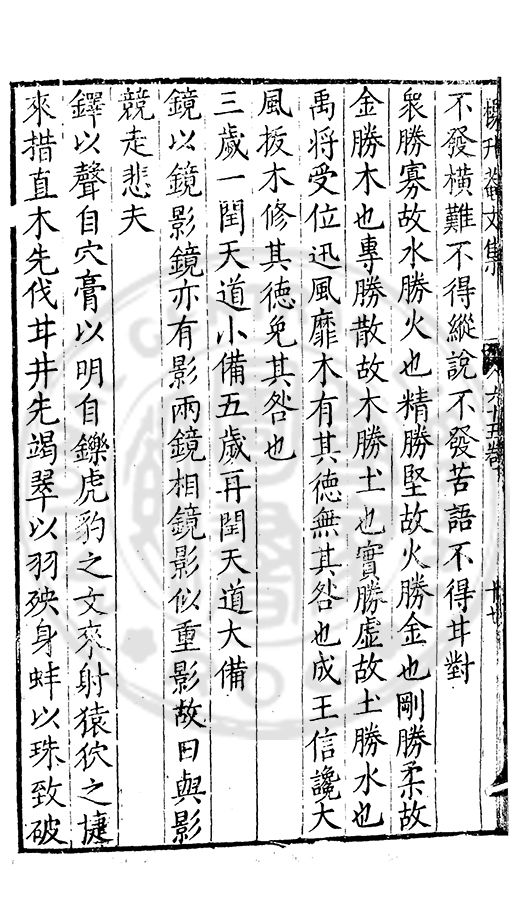 楊升菴文集
六十五卷
廿七
不發橫難不得縱說不發苦語不得甘對
衆勝寡故水勝火也精勝堅故火勝金也剛勝柔故
金勝木也專勝散故木勝土也實勝虛故土勝水也
禹將受位迅風靡木有其德無其咎也成王信讒大
風拔木修其德免其咎也
三歲一閏天道小備五歲再閏天道大備
鏡以鏡影鏡亦有影兩鏡相鏡影似重影故曰與影
競走悲夫
鐸以聲自穴膏以明自鑠虎豹之文來射猿狖之捷
來措直木先伐甘井先竭翠以羽殃身蚌以珠致破